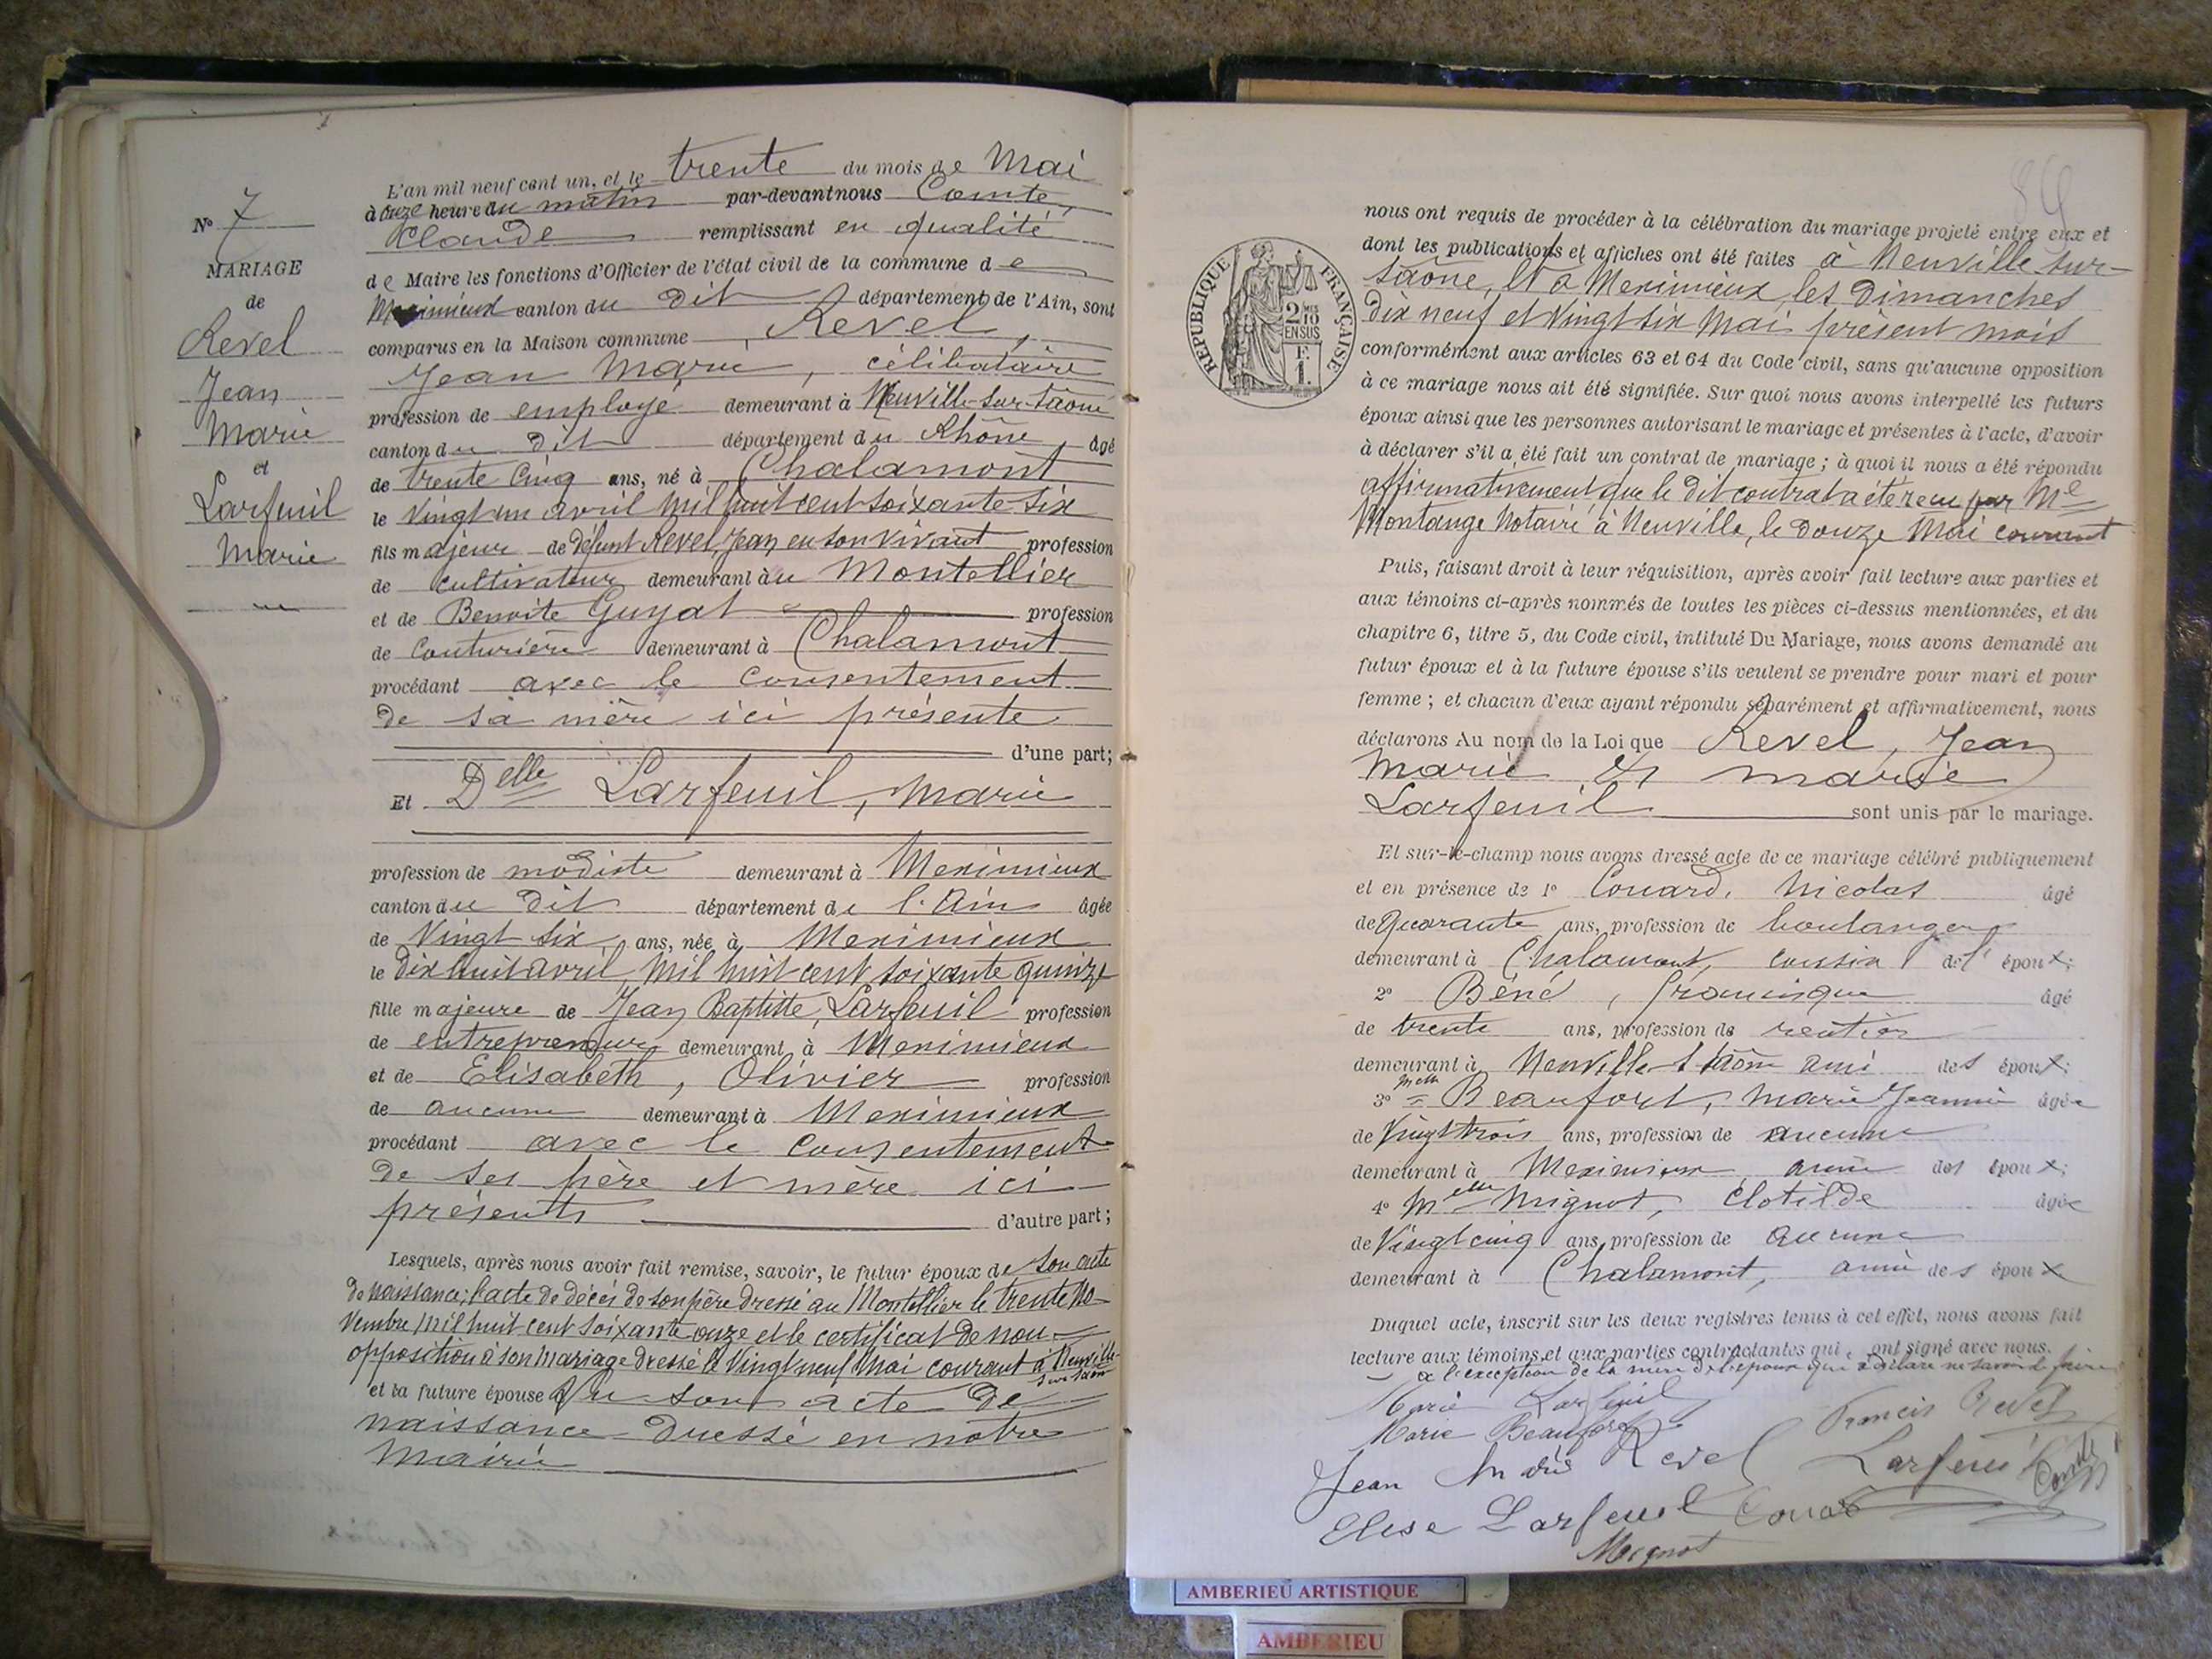 N° 7
MARIAGE
de
Revel
Jean
Marie
et
Larfeuil
Marie
L'an mil neuf cent un, et le trente du mois de Mai
à onze heure du matin par-devant nous Comte,
Claude remplissant en qualité
de Maire les fonctions d'Officier de l'état civil de la commune de
Meximieux canton du dit département de l'Ain, sont
comparus en la Maison commune, Revel,
Jean Marie, célibataire
profession de employé demeurant à Neuville-sur-Saône
canton du dit département du Rhône, âgé
de trente cinq ans, né à Chalamont
le vingt un avril mil huit cent soixante six
fils majeur de défunt Revel, Jean en son vivant profession
de cultivateur demeurant au Montellier
et de Benoite Guyat profession
de Couturière demeurant à Chalamont
procédant avec le consentement
de sa mère ici présente
d'une part;
Et Delle Larfeuil, Marie
profession de modiste demeurant à Meximieux
canton du dit département de l'Ain âgée
de vingt six ans, née à Meximieux
le dix huit avril mil huit cent soixante quinze
fille majeure de Jean Baptiste, Larfeuil profession
de entrepreneur demeurant à Meximieux
et de Elisabeth, Olivier profession
de aucune demeurant à Meximieux
procédant avec le consentement
de ses père et mère ici
présents d'autre part;
Lesquels, après nous avoir fait remise, savoir, le futur époux de son acte
de naissance; l'acte de décès de son père dressé au Montellier le trente No-
vembre mil huit cent soixante onze et le certificat de non
opposition à son mariage dressé le vingt neuf Mai courant à Neuville-
sur Saône
et la future épouse Vu son acte de
naissance dressé en notre
mairie
59
RÉPUBLIQUE FRANÇAISE
2/10
EN SUS
F.
1.
nous ont requis de procéder à la célébration du mariage projeté entre eux et
dont les publications et affiches ont été faites à Neuville sur-
Saône, et à Meximieux, les dimanches
dix neuf et vingt six Mai présent mois
conformément aux articles 63 et 64 du Code civil, sans qu'aucune opposition
à ce mariage nous ait été signifiée. Sur quoi nous avons interpellé les futurs
époux ainsi que les personnes autorisant le mariage et présentes à l'acte, d'avoir
à déclarer s'il a été fait un contrat de mariage; à quoi il nous a été répondu
affirmativement que le dit contrat a été recu par Me
Montange Notaire à Neuville, le douze Mai courant
Puis, faisant droit à leur réquisition, après avoir fait lecture aux parties et
aux témoins ci-après nommés de toutes les pièces ci-dessus mentionnées, et du
chapitre 6, titre 5, du Code civil, intitulé Du Mariage, nous avons demandé au
futur époux et à la future épouse s'ils veulent se prendre pour mari et pour
femme; et chacun d'eux ayant répondu séparément et affirmativement, nous
déclarons Au nom de la Loi que Revel, Jean
Marie et Marie
Larfeuil sont unis par le mariage.
Et sur-le-champ nous avons dressé acte de ce mariage célébré publiquement
et en présence de 1° Couard, Nicolas âgé
de Quarante ans, profession de boulanger
demeurant à Chalamont, cousin de l'époux;
2° Béné, Francisque âgé
de trente ans, profession de rentier
demeurant à Neuville s Saône ami des époux;
3° Melle Beaufort, Marie Jeannie âgée
de vingt trois ans, profession de aucune
demeurant à Meximieux, amie des époux;
4° Melle Mignot, Clotilde âgée
de Vingt cinq ans, profession de aucune
demeurant à Chalamont, amie des époux
Duquel acte, inscrit sur les deux registres tenus à cet effet, nous avons fait
lecture aux témoins et aux parties contractantes qui ont signé avec nous.
à l'exception de la mère de l'époux qui a déclaré ne savoir le faire
Marie Larfeuil
Francis Revel
Marie Beaufort
Jean Marie Revel
Larfeuil
Comte
Elise Larfeuil
Couard
Mignot
AMBERIEU ARTISTIQUE
AMBERIEU